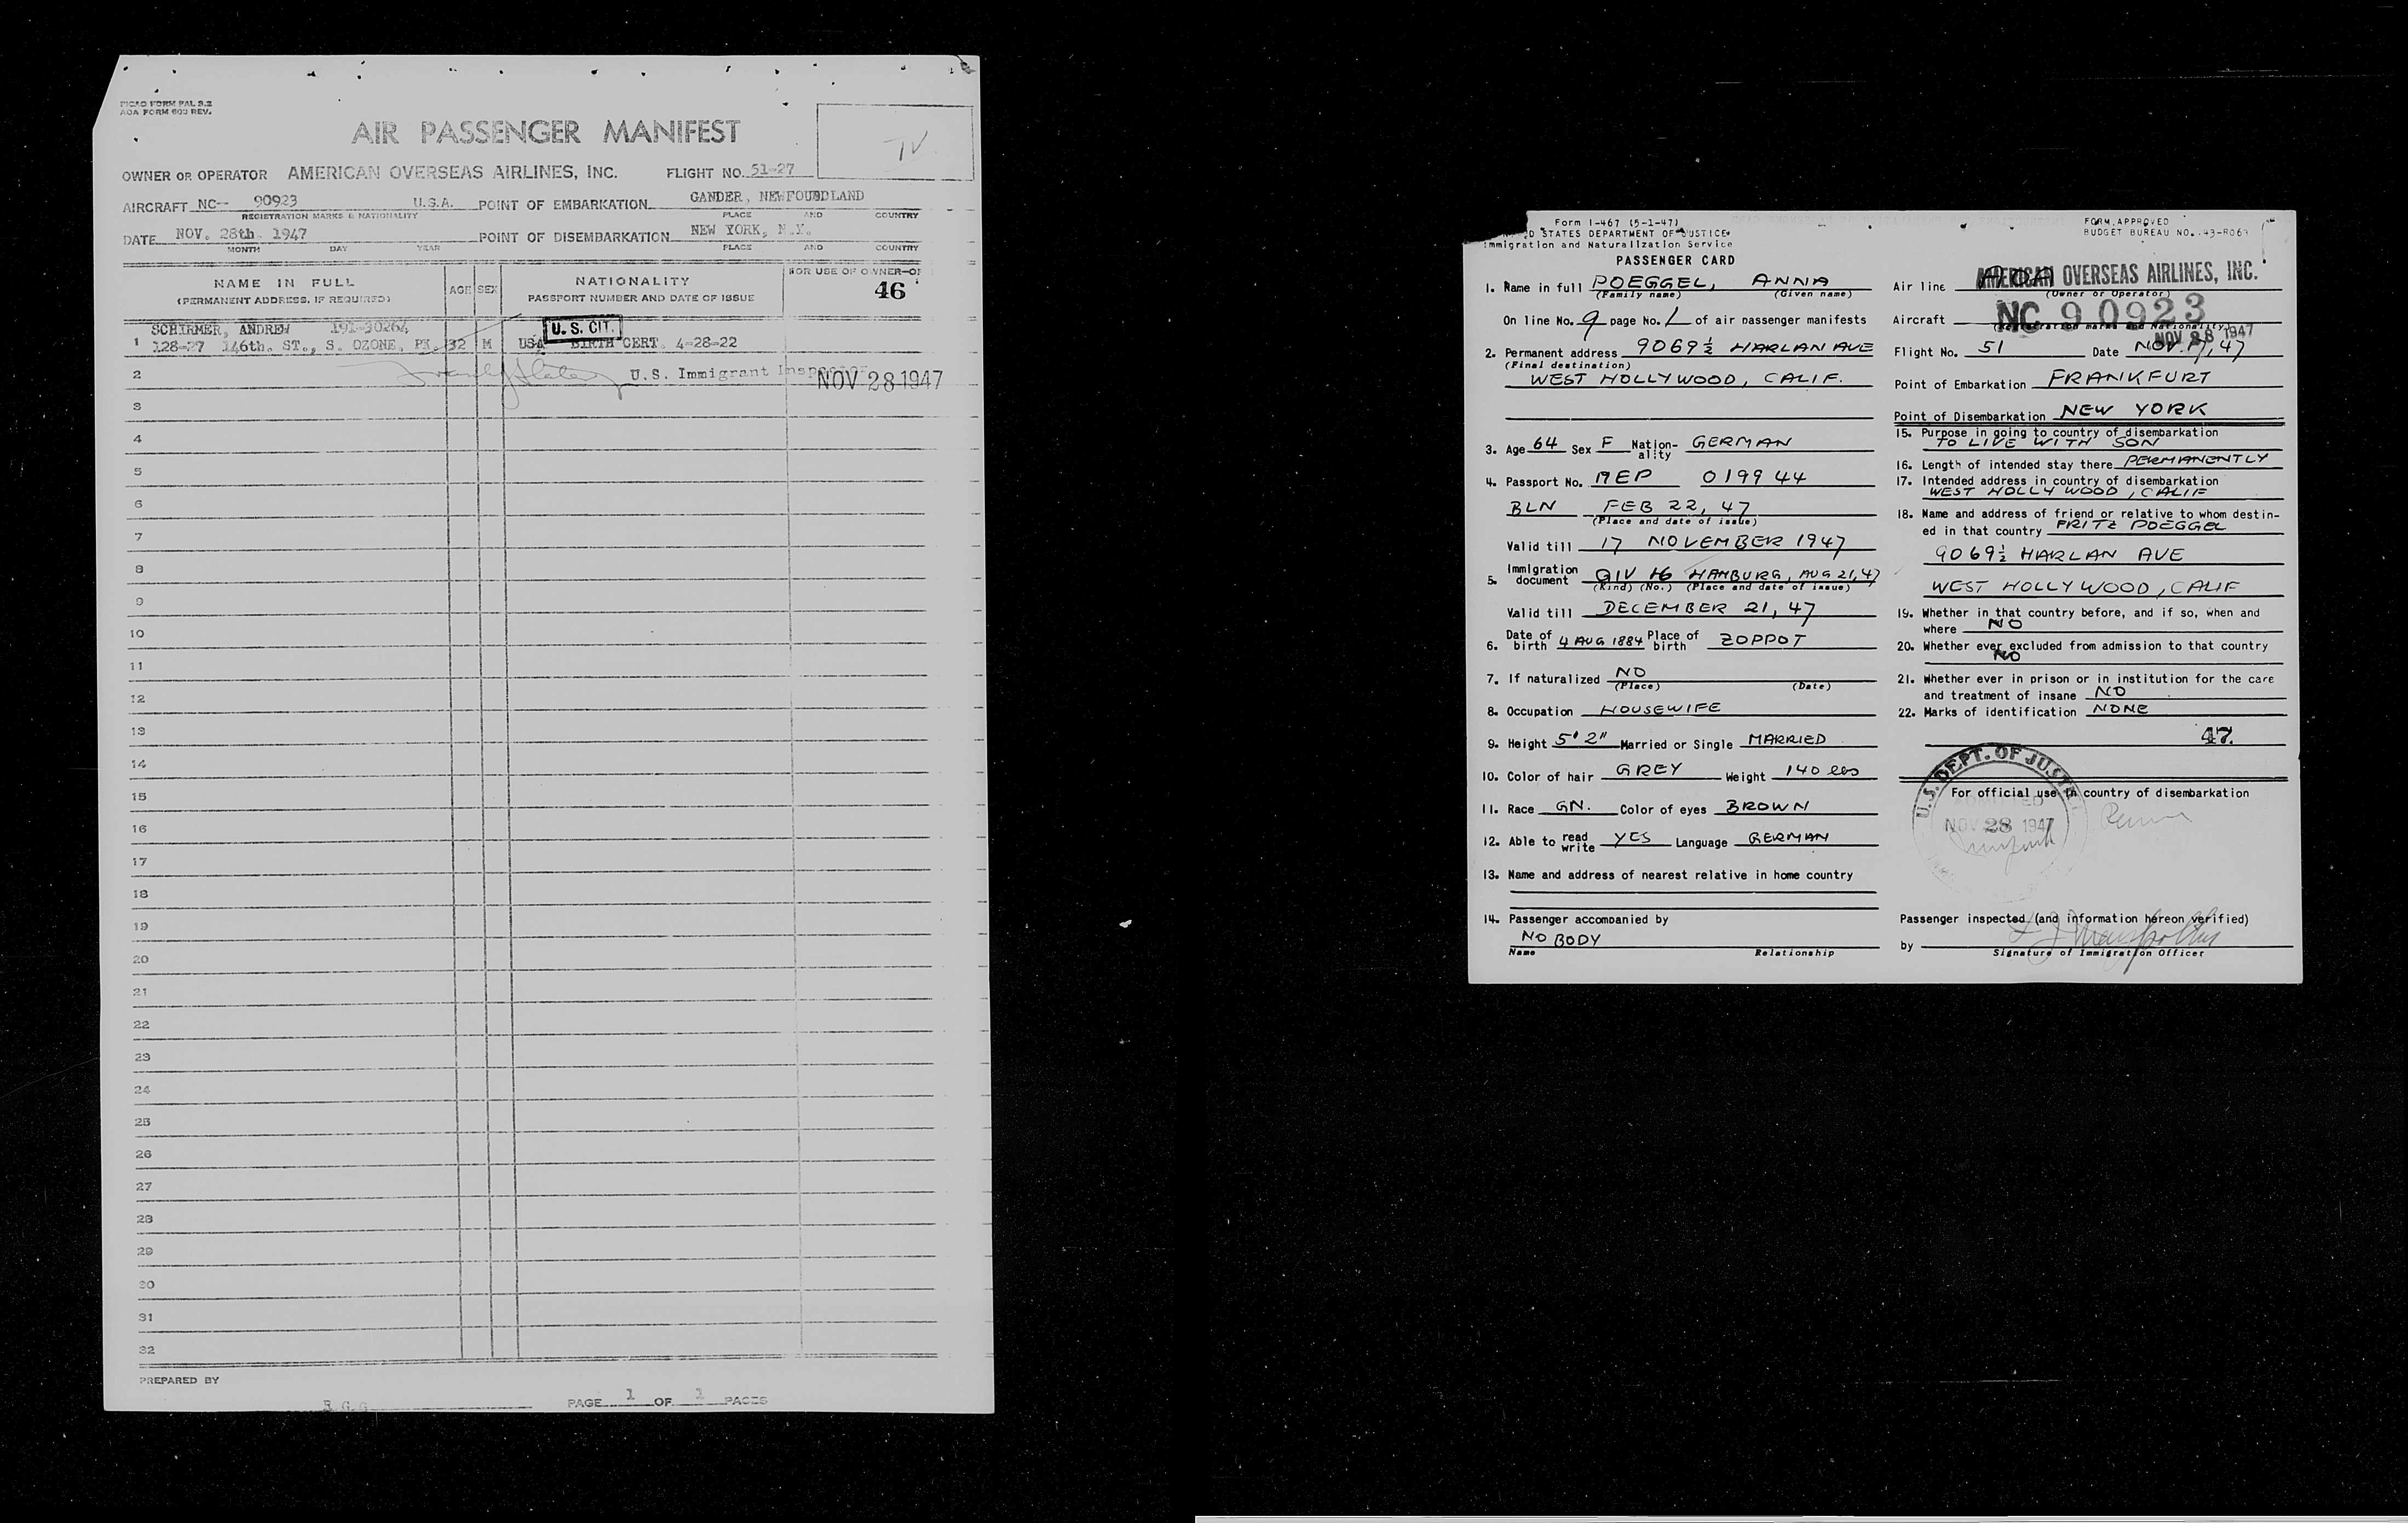 PICAO FORM PAL 3.2
AOA FORM 603 REV.
AIR PASSENGER MANIFEST
OWNER OR OPERATOR AMERICAN OVERSEAS AIRLINES, INC. FLIGHT NO. 51-27
AIRCRAFT NC-- 90923 U.S.A. POINT OF EMBARKATION GANDER, NEWFOUNDLAND
REGISTRATION MARKS & NATIONALITY PLACE AND COUNTRY
DATE NOV. 28th. 1947 POINT OF DISEMBARKATION NEW YORK, N.Y.
MONTH DAY YEAR PLACE AND COUNTRY
NAME IN FULL AGE SEX NATIONALITY FOR USE OF OWNER—OF
(PERMANENT ADDRESS, IF REQUIRED) PASSPORT NUMBER AND DATE OF ISSUE 46
SCHIRMER, ANDREW 191-30264 U.S. CIT.
1 128-27 146th. ST., S. OZONE, PK. 32 M USA BIRTH CERT. 4-28-22
2 U.S. Immigrant Inspector NOV 28 1947
3
4
5
6
7
8
9
10
11
12
13
14
15
16
17
18
19
20
21
22
23
24
25
26
27
28
29
30
31
32
PREPARED BY
R.G.G PAGE 1 OF 1 PAGES
Form I-467 (5-1-47)
D STATES DEPARTMENT OF JUSTICE
Immigration and Naturalization Service
PASSENGER CARD
FORM APPROVED
BUDGET BUREAU NO. 43-R063
1. Name in full POEGGEL, ANNA
(Family name) (Given name)
On line No. 9 page No. 1 of air passenger manifests
2. Permanent address 9069½ HARLAN AVE
(Final destination)
WEST HOLLYWOOD, CALIF.
3. Age 64 Sex F Nationality GERMAN
4. Passport No. MEP 019944
BLN FEB 22, 47
(Place and date of issue)
Valid till 17 NOVEMBER 1947
5. Immigration document QIV 16 HAMBURG, AUG 21, 47
(Kind) (No.) (Place and date of issue)
Valid till DECEMBER 21, 47
6. Date of birth 4 AUG 1884 Place of birth ZOPPOT
7. If naturalized NO
(Place) (Date)
8. Occupation HOUSEWIFE
9. Height 5' 2" Married or Single MARRIED
10. Color of hair GREY Weight 140 lbs
11. Race GN. Color of eyes BROWN
12. Able to read write YES Language GERMAN
13. Name and address of nearest relative in home country
14. Passenger accompanied by
NOBODY
Name Relationship
Air line AMERICAN OVERSEAS AIRLINES, INC.
(Owner or Operator)
Aircraft NC 90923
(Registration marks and Nationality)
NOV 28 1947
Flight No. 51 Date NOV. 47
Point of Embarkation FRANKFURT
Point of Disembarkation NEW YORK
15. Purpose in going to country of disembarkation
TO LIVE WITH SON
16. Length of intended stay there PERMANENTLY
17. Intended address in country of disembarkation
WEST HOLLYWOOD, CALIF
18. Name and address of friend or relative to whom destin-
ed in that country FRITZ POEGGEL
9069½ HARLAN AVE
WEST HOLLYWOOD, CALIF
19. Whether in that country before, and if so, when and
where NO
20. Whether ever excluded from admission to that country
NO
21. Whether ever in prison or in institution for the care
and treatment of insane NO
22. Marks of identification NONE
47.
U.S. DEPT. OF JUSTICE
For official use in country of disembarkation
ADMITTED
NOV 28 1947
Passenger inspected (and information hereon verified)
by
Signature of Immigration Officer